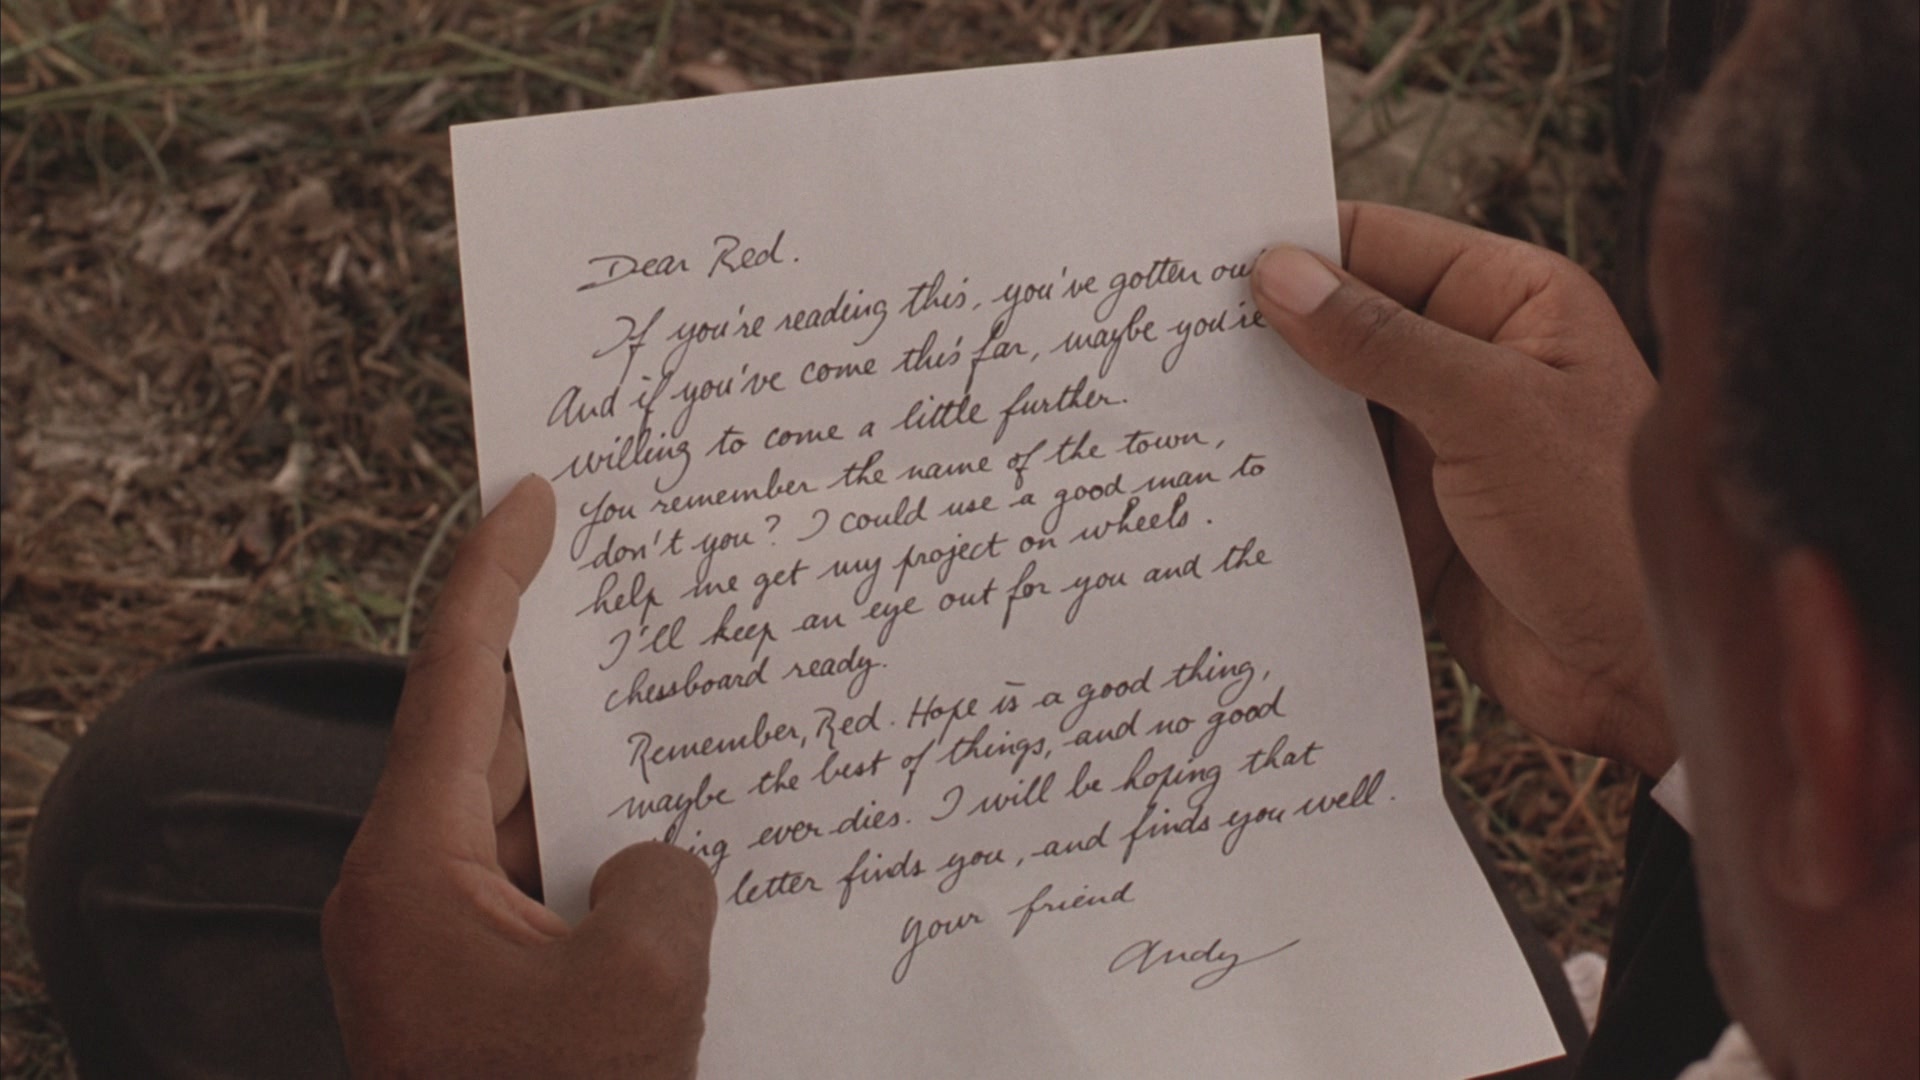 Dear Red.
If you're reading this, you've gotten out
And if you've come this far, maybe you're
willing to come a little further.
You remember the name of the town,
don't you? I could use a good man to
help me get my project on wheels.
I'll keep an eye out for you and the
chessboard ready.
Remember, Red. Hope is a good thing,
maybe the best of things, and no good
thing ever dies. I will be hoping that
letter finds you, and finds you well.
your friend
Andy